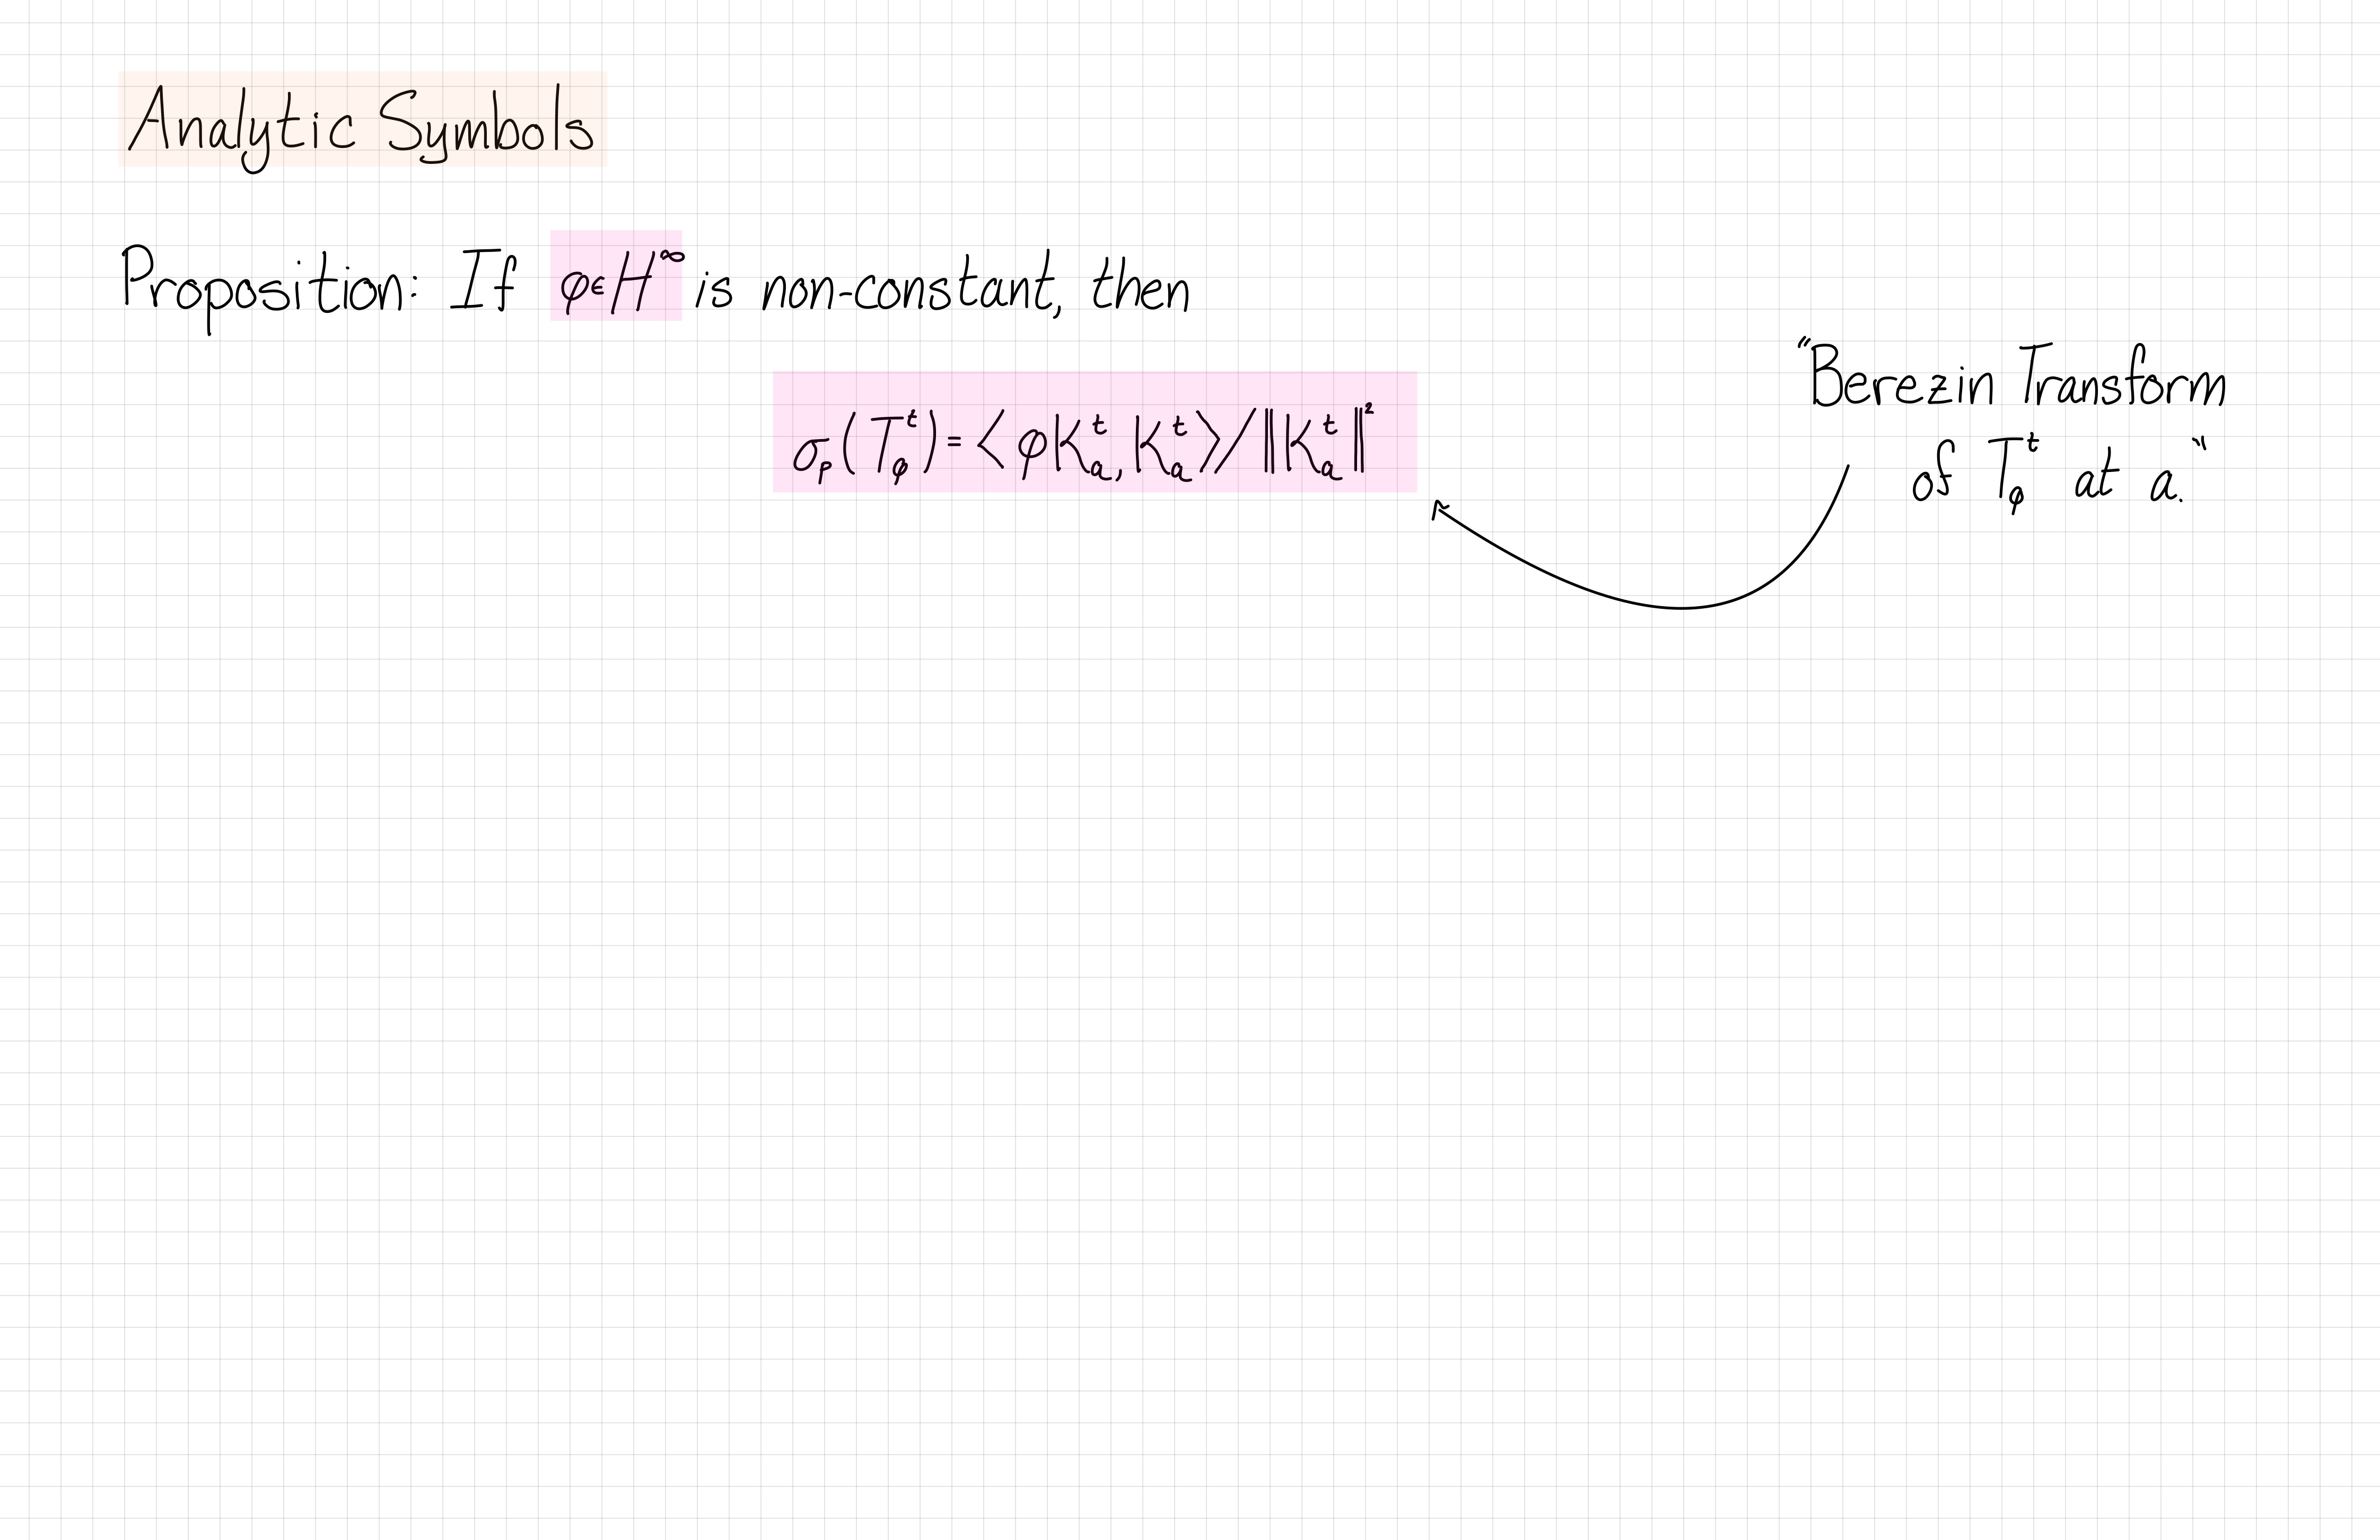 Analytic Symbols
Proposition: If φ∈H^∞ is non-constant, then
σ_p(T_φ^t) = ⟨φK_a^t, K_a^t⟩/‖K_a^t‖²
"Berezin Transform
of T_φ^t at a."